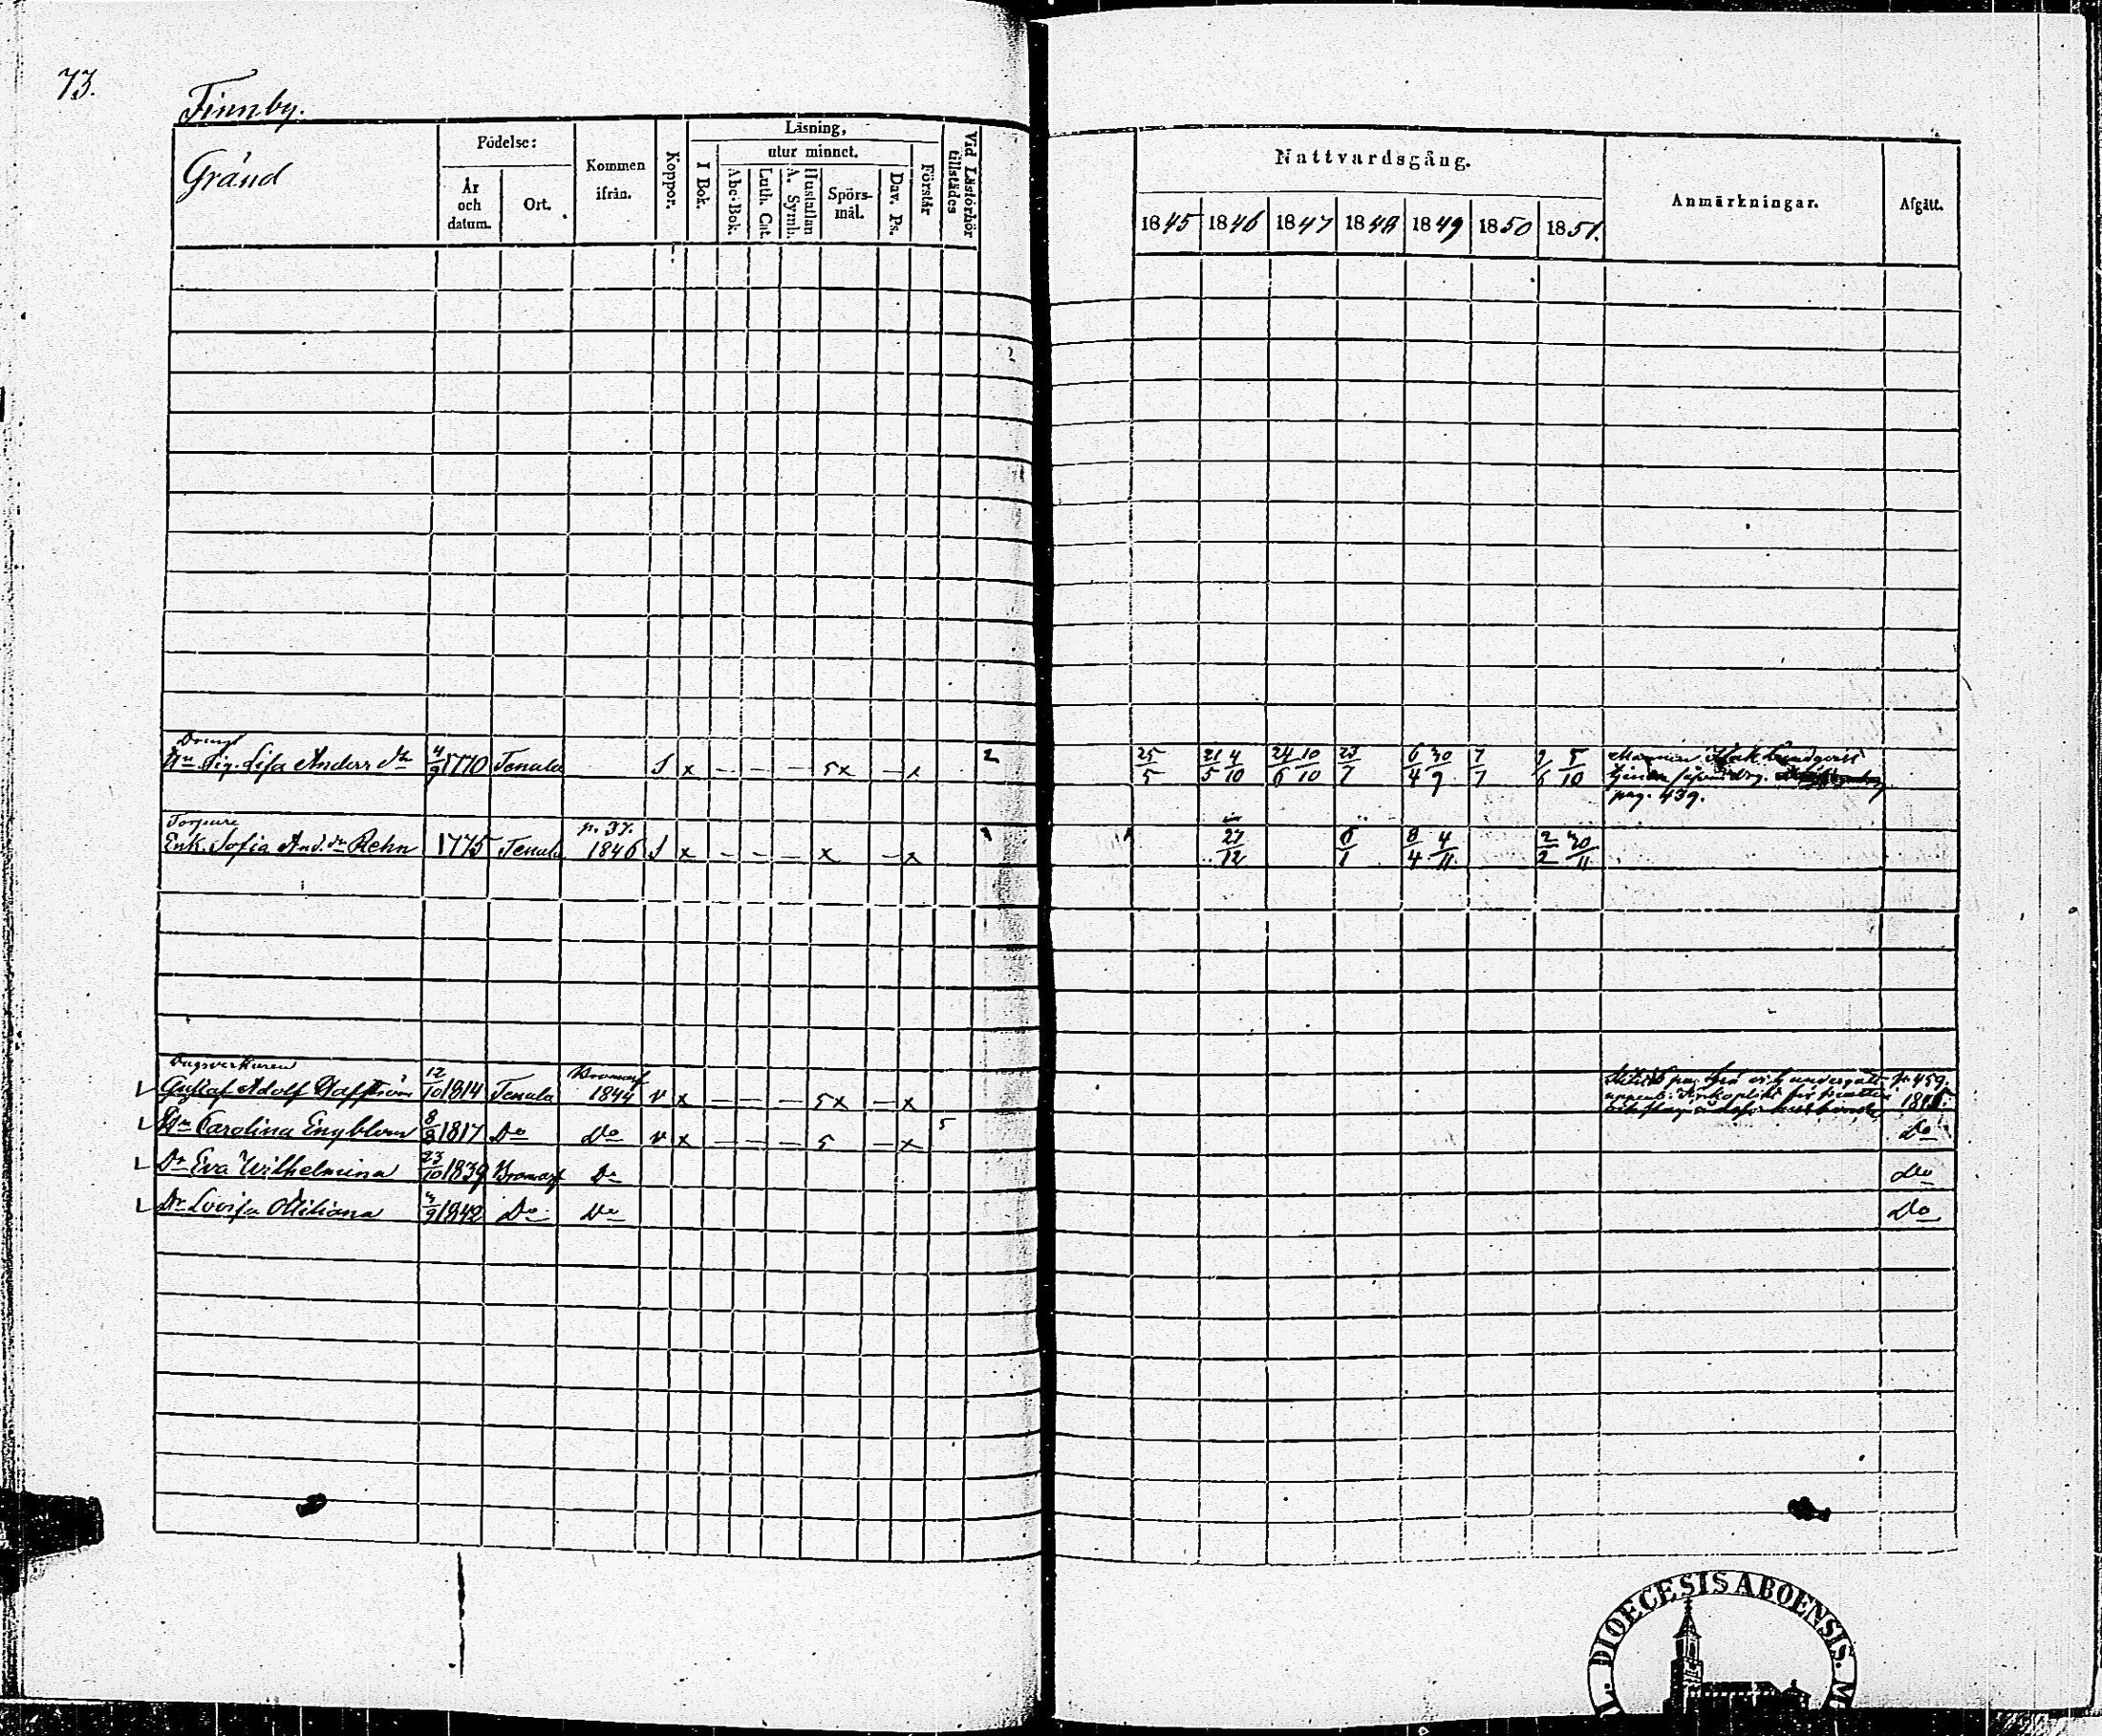 73.
Finnby.
Gränd
Födelse:
År och datum.
Ort.
Kommen ifrån.
Koppor.
Läsning,
I Bok.
utur minnet.
Abc-Bok.
Luth. Cat.
Hustaflan A. Symb.
Spörsmål.
Dav. Ps.
Förstår
Vid Läsförhör tillstädes
Nattvardsgång.
1845 1846 1847 1848 1849 1850 1851.
Anmärkningar.
Afgått.
Hu Sig. Lisa Anders dr 4/9 1770 Tenala S x – – – 5x – x 2 25/5 21/5 4/10 24/6 10/10 23/7 6/4 30/9 7/7 5/10 Mannen Isak Lundqvist
pag. 439.
Torpare
Enk. Sofia And. dr Rehn 1775 Tenala p. 37. 1846 S x – – – x – x 27/12 6/1 8/4 4/11 2/2 30/11
Dagsverkaren
Gustaf Adolf Staffström 12/10 1814 Tenala Bromarf 1844 v x – – – 5x – x p. 459.
Hu Carolina Engblom 8/8 1817 Do Do v x – – – 5 – x 5 Do
Dr Eva Wilhelmina 23/10 1839 Bromarf Do Do
Dr Lovisa 1842 Do Do Do
DIOECESIS ABOENSIS. M
L.